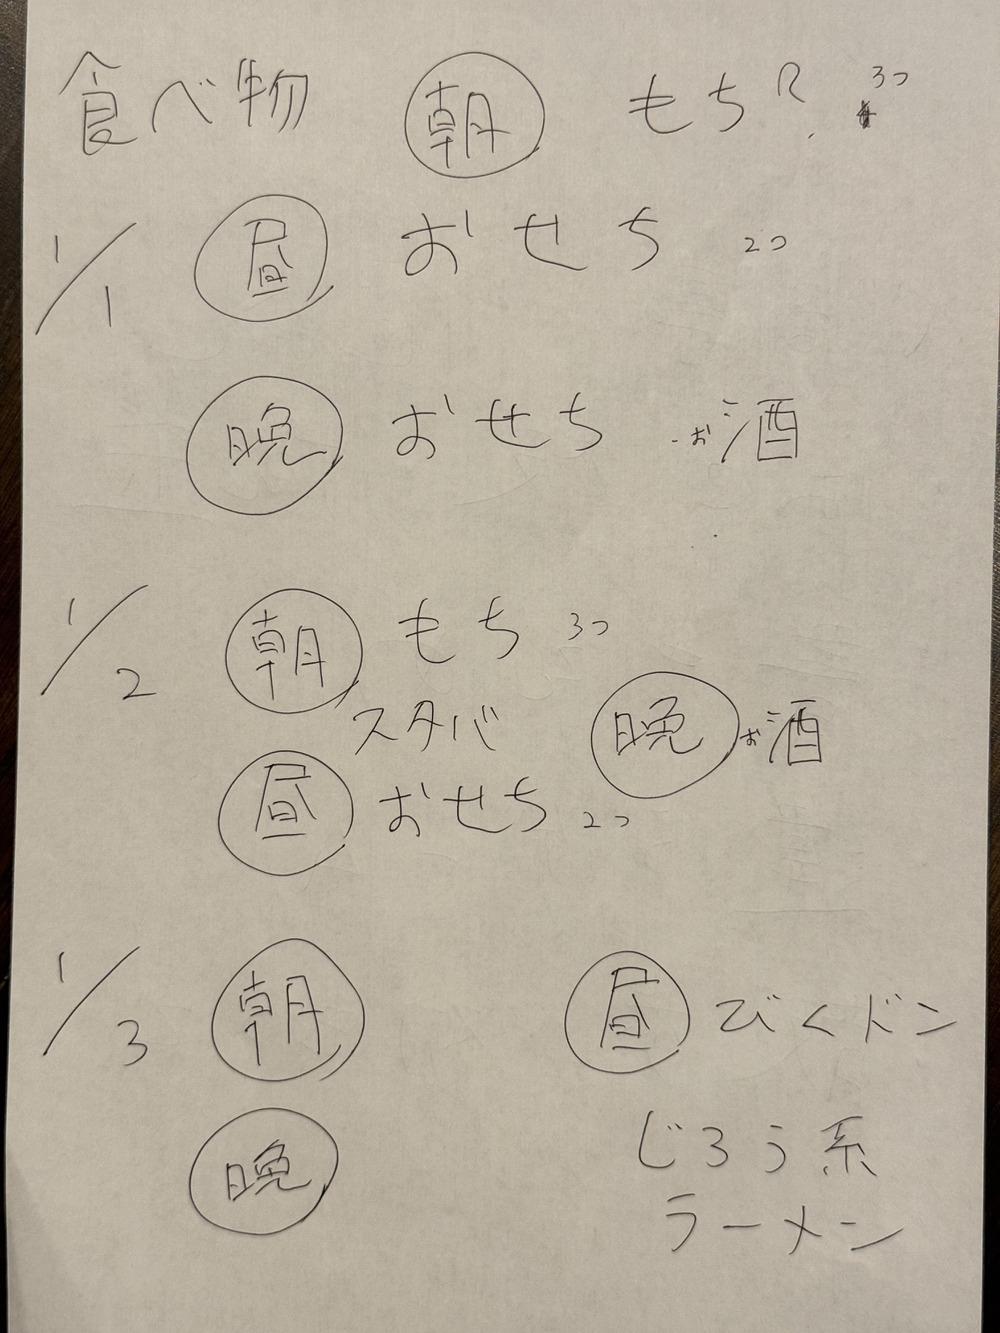 食べ物 朝 もち? 3つ
1/1 昼 おせち 2つ
晩 おせち お酒
1/2 朝 もち 3つ
スタバ 晩 お酒
昼 おせち 2つ
1/3 朝 昼 びくドン
晩 じろう系
ラーメン